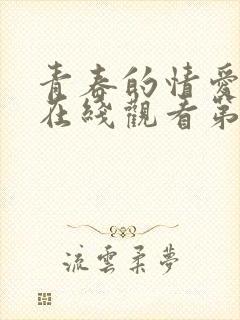 青春的情愛
在綫觀看第
流雲柔夢